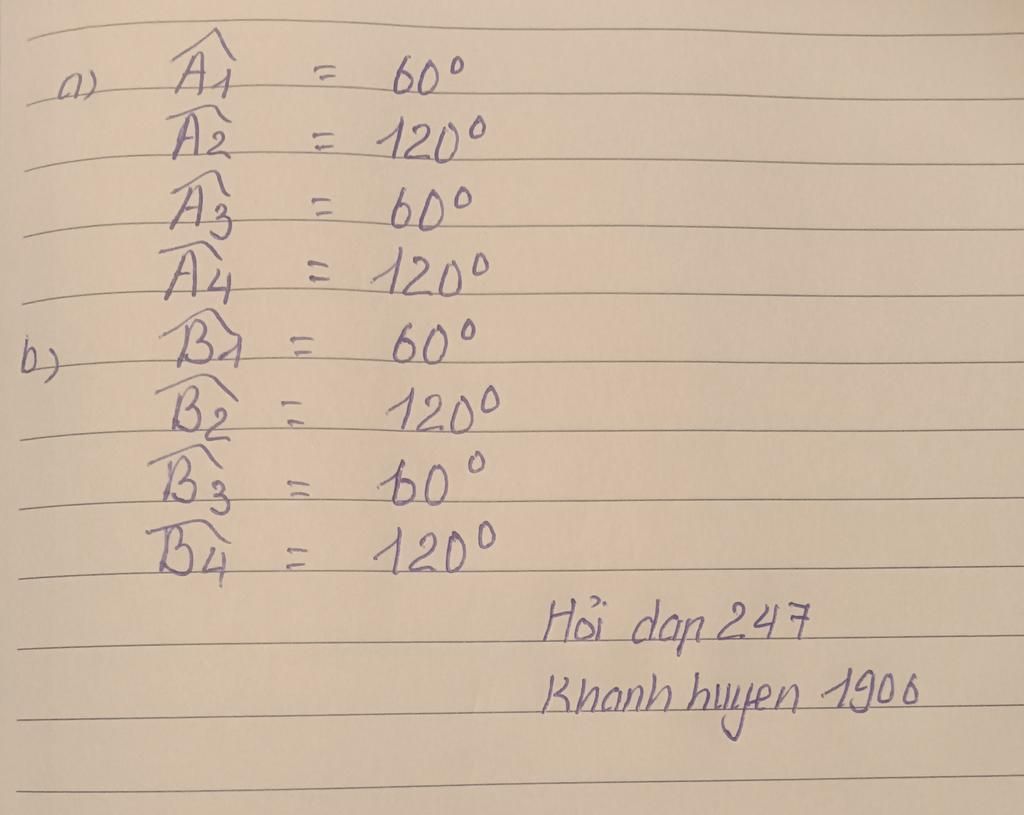 a) Â1 = 60°
Â2 = 120°
Â3 = 60°
Â4 = 120°
b) B̂1 = 60°
B̂2 = 120°
B̂3 = 60°
B̂4 = 120°
Hỏi dap 247
Khanh huyen 1906